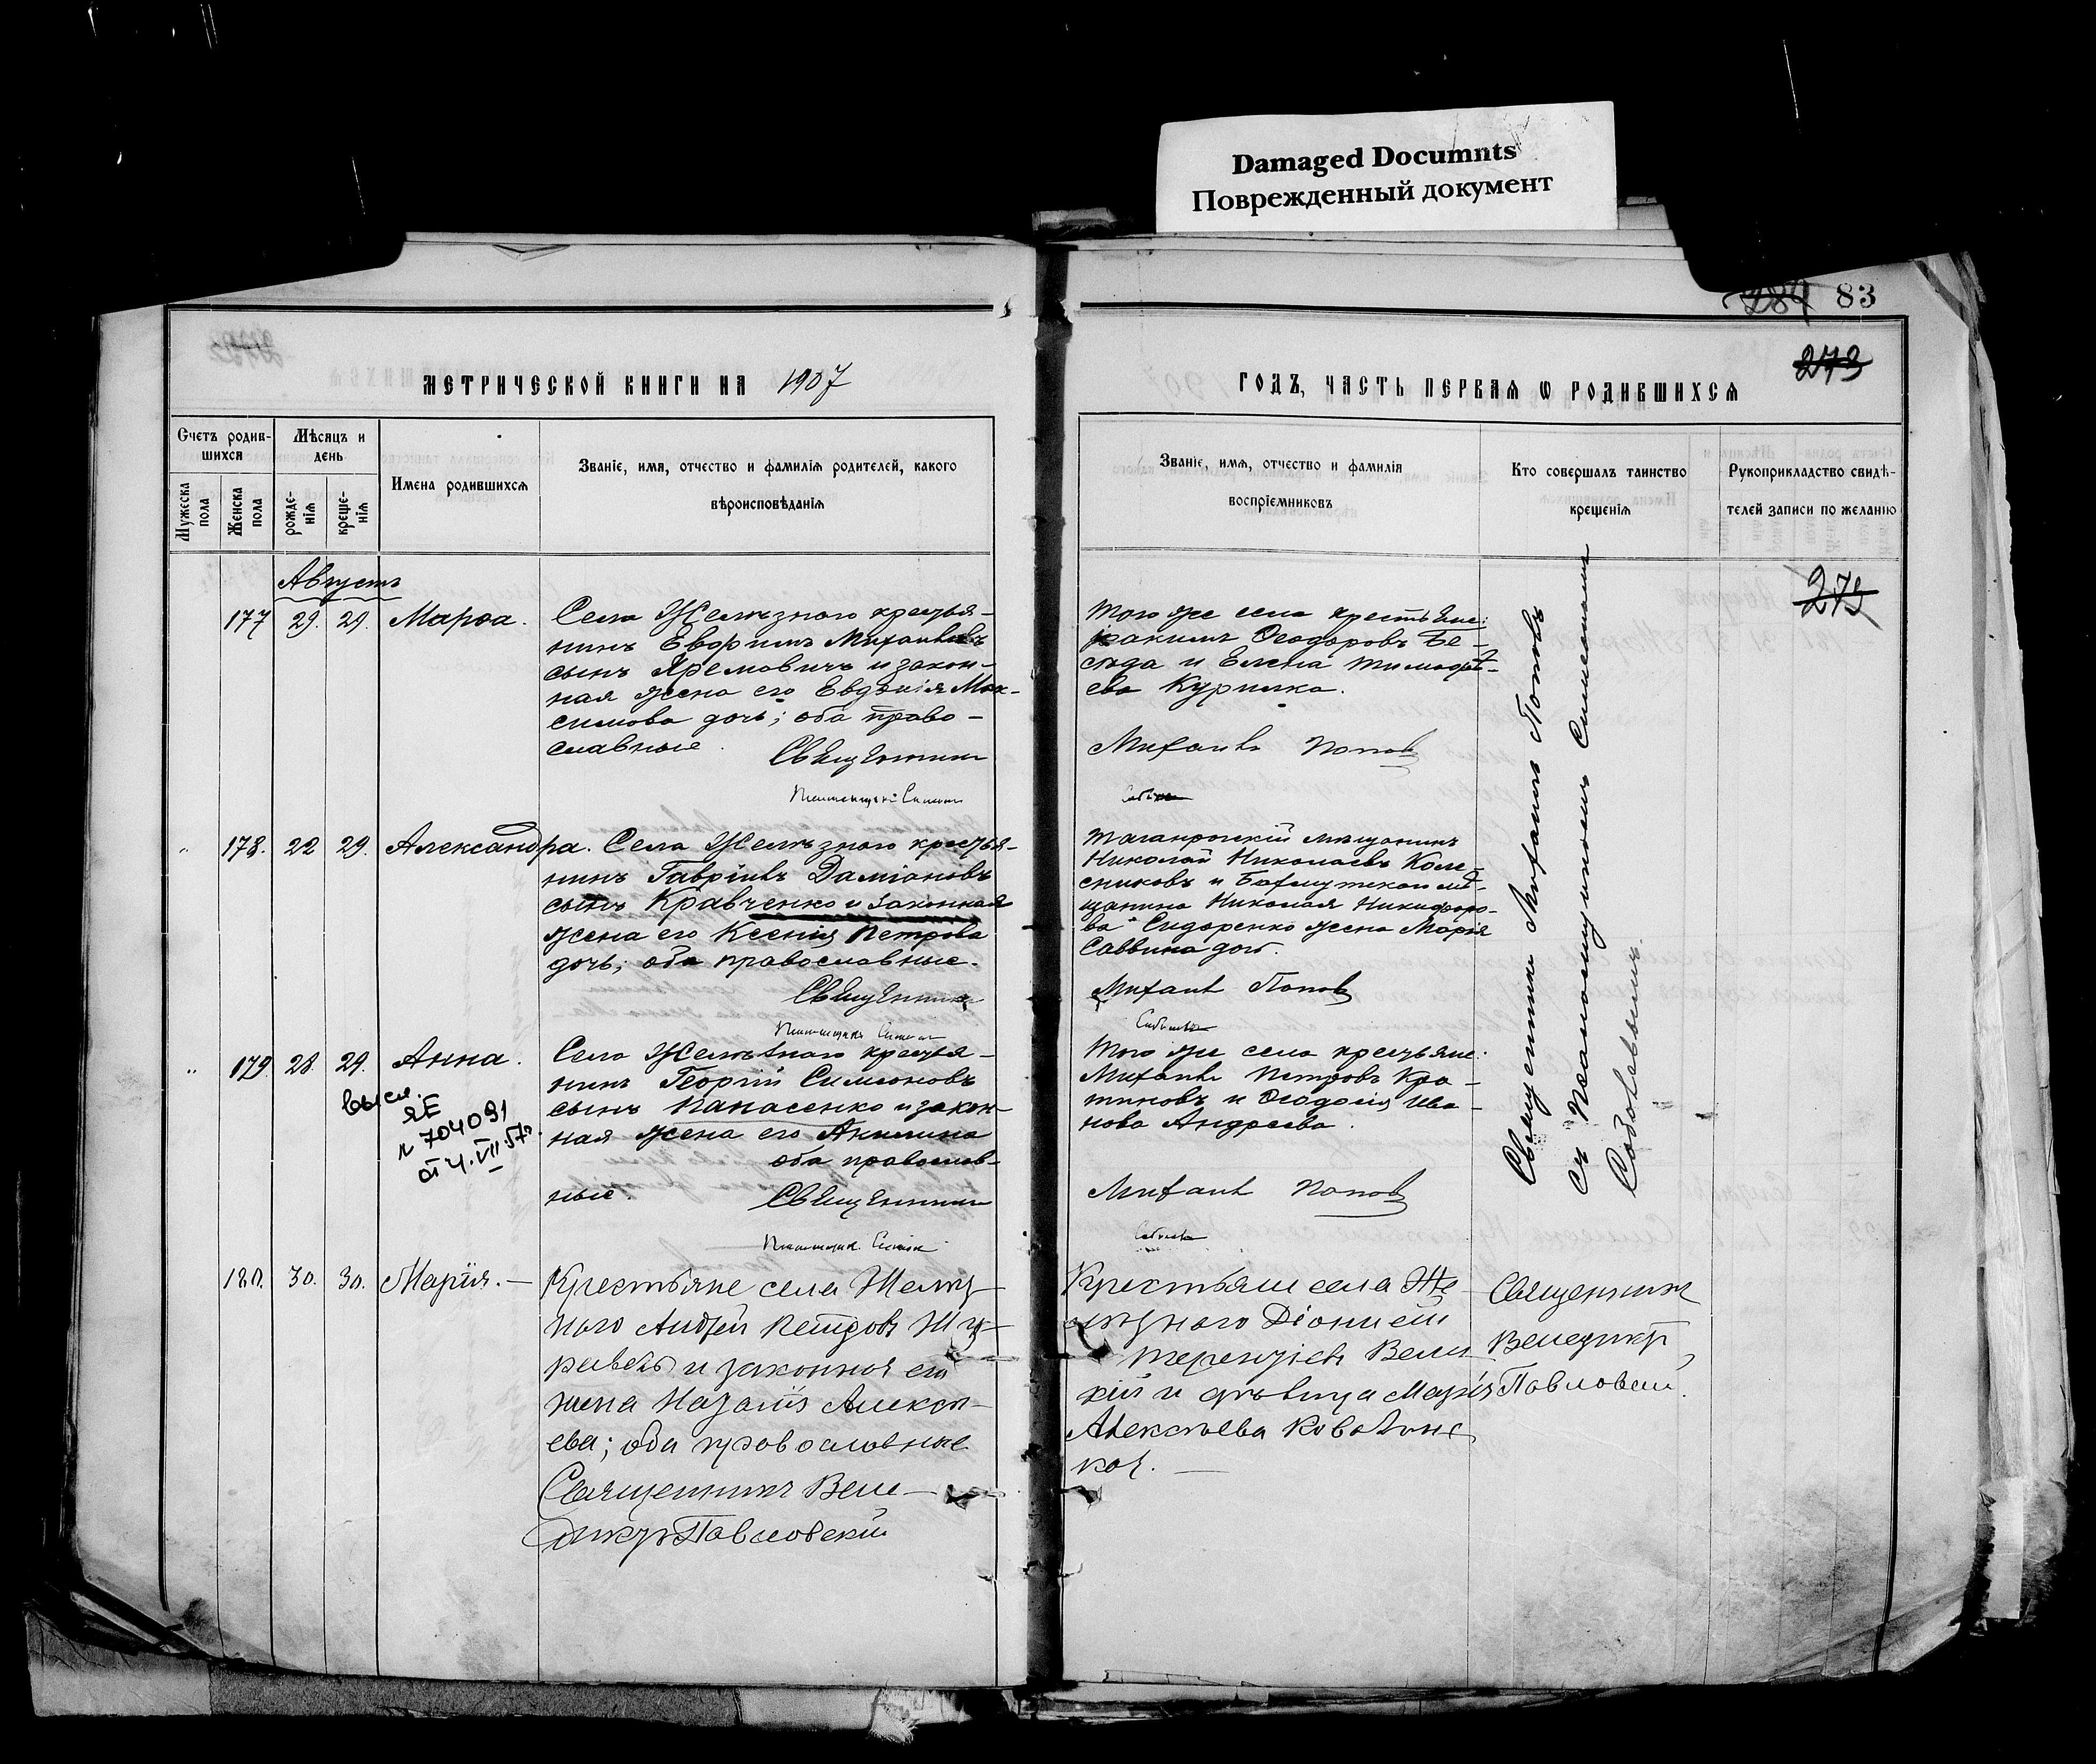 Damaged Documnts
Поврежденный документ
287 83
273
МЕТРИЧЕСКОЙ КНИГИ НА 1907
ГОДЪ, ЧАСТЬ ПЕРВАЯ Ѡ РОДИВШИХСЯ
Счетъ родив-
шихся
Мужеска пола
Женска пола
Мѣсяцъ и
день
рожде-
нія
креще-
нія
Имена родившихся
Званіе, имя, отчество и фамилія родителей, какого
вѣроисповѣданія
Званіе, имя, отчество и фамилія
воспріемниковъ
Кто совершалъ таинство
крещенія
Рукоприкладство свидѣ-
телей записи по желанію
273
Августъ
177 29. 29. Марѳа.
Села Желѣзнаго крестья-
нинъ Евфимъ Михаиловъ
сынъ Яремовичъ и закон-
ная жена его Евдокія Мак-
симова дочь; оба право-
славные.
Священникъ
Того же села крестьяне:
Ѳеодоровъ Бе-
сѣда и Елена Тимофѣ-
ева Курилко.
Михаилъ Поповъ
178. 22 29. Александра.
Села Желѣзнаго крестья-
нинъ Гавріилъ Даміановъ
сынъ Кравченко и законная
жена его Ксенія Петрова
дочь; оба православные.
Священникъ
Таганрогскій мѣщанинъ
Николай Николаевъ Коле-
сниковъ и Бахмутскаго мѣ-
щанина Николая Никифоро-
ва Сидоренко жена Марія
Саввина дочь.
Михаилъ Поповъ
179. 28. 29. Анна.
высл.
ЯЕ
№ 704091
от 4.VII.57г.
Села Желѣзнаго крестья-
нинъ Георгій Симеоновъ
сынъ Панасенко и закон-
ная жена его Акилина
оба православ-
ные.
Священникъ
Того же села крестьяне:
Михаилъ Петровъ Кра-
тиновъ и Ѳеодосія Ива-
нова Андреева.
Михаилъ Поповъ
Священникъ Михаилъ Поповъ
съ Псаломщикомъ Симеономъ
180. 30. 30. Марія. —
Крестьяне села Желѣз-
наго Андрей Петровъ Жу-
равель и законная его
жена Наталія Алексѣ-
ева; оба православные
Священникъ Вене-
диктъ Павловскій
Крестьяне села Же-
лѣзнаго Діонисій
Терентіевъ Вели-
кій и дѣвица Марія
Алексѣева Ковалинс-
кая. —
Священникъ
Венедиктъ
Павловскій.